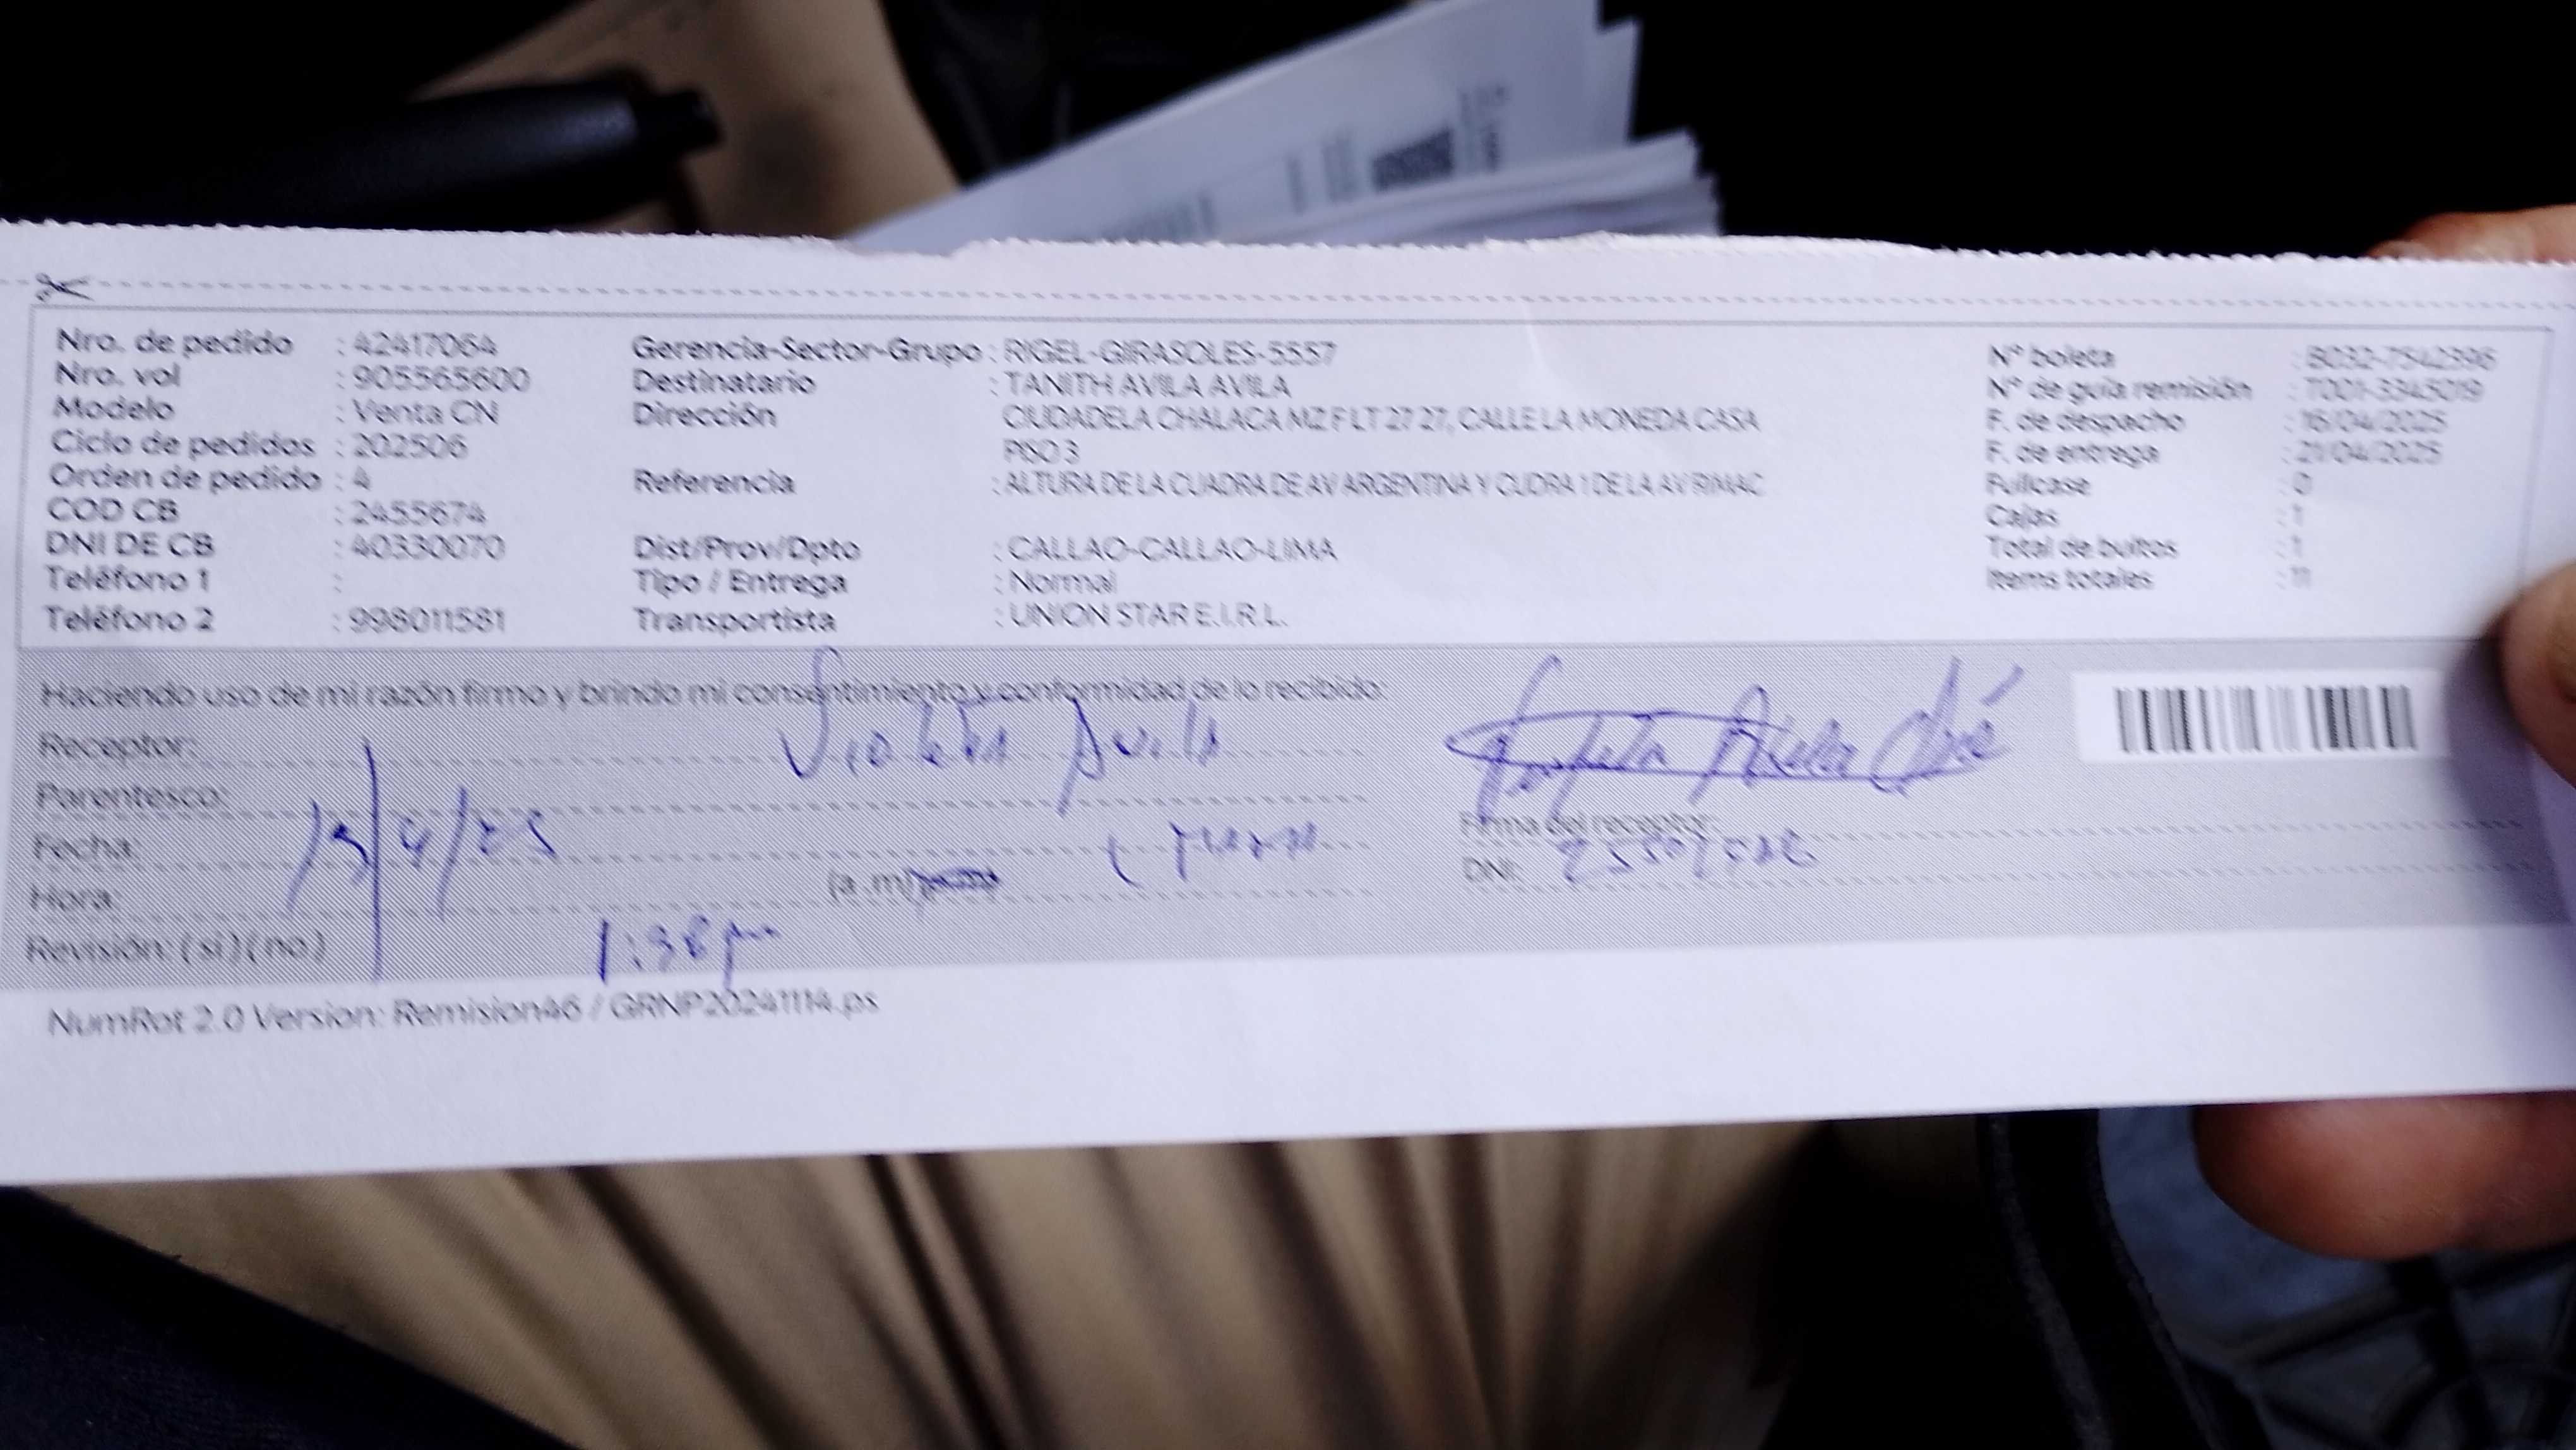 Nro. de pedido : 42417064
Nro. vol : 905565600
Modelo : Venta CN
Ciclo de pedidos : 202506
Orden de pedido : 4
COD CB : 2455674
DNI DE CB : 40330070
Teléfono 1 :
Teléfono 2 : 998011581
Gerencia-Sector-Grupo : RIGEL-GIRASOLES-5557
Destinatario : TANITH AVILA AVILA
Dirección CIUDADELA CHALACA MZ F LT 27 27, CALLE LA MONEDA CASA
PISO 3
Referencia : ALTURA DE LA CUADRA DE AV ARGENTINA Y CUDRA 1 DE LA AV RIMAC
Dist/Prov/Dpto : CALLAO-CALLAO-LIMA
Tipo / Entrega : Normal
Transportista : UNION STAR E.I.R.L.
N° boleta : B032-7542396
N° de guía remisión : T001-3345019
F. de despacho : 16/04/2025
F. de entrega : 21/04/2025
Fullcase : 0
Cajas : 1
Total de bultos : 1
Items totales : 11
Haciendo uso de mi razón firmo y brindo mi consentimiento y conformidad de lo recibido:
Receptor: Violeta Avila
Parentesco:
Fecha:
Hora: (a.m)
1:38 pm
Revisión: (si) (no)
Firma del receptor:
DNI:
NumRot 2.0 Version: Remision46 / GRNP20241114.ps